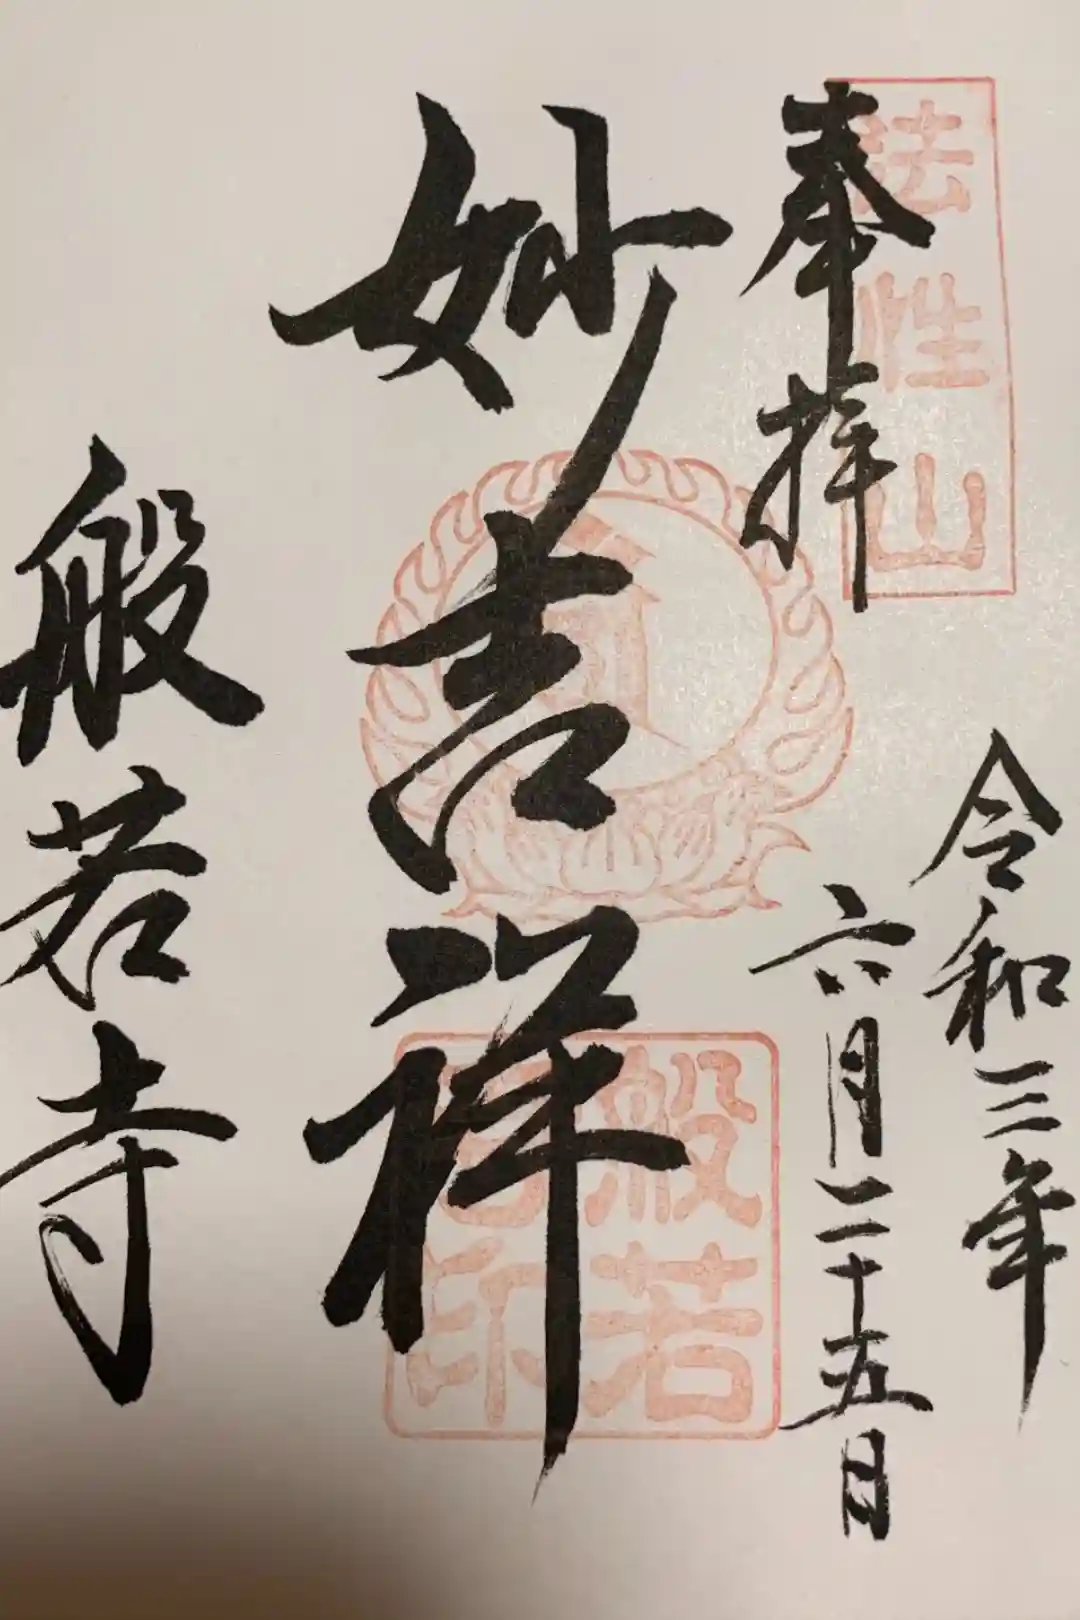 奉拝
法性山
令和三年
六月二十五日
妙吉祥
般若
寺印
般若寺